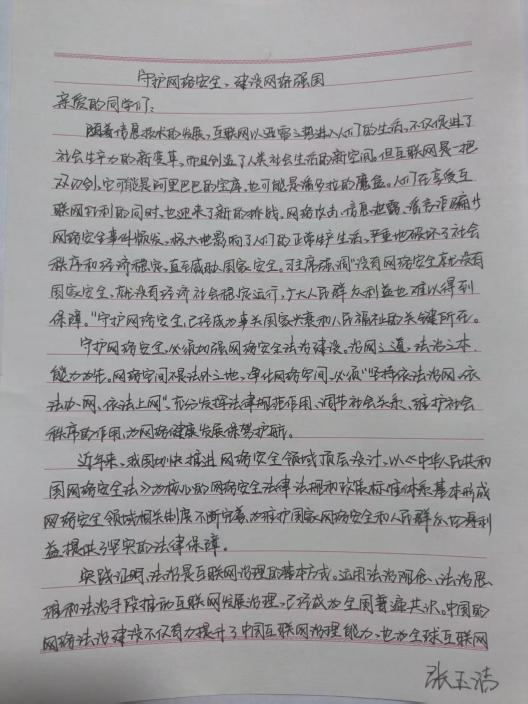 守护网络安全,建设网络强国
亲爱的同学们:
随着信息技术的发展,互联网以迅雷之势进入人们的生活,不仅促进了
社会生产力的新变革,而且创造了人类社会生活的新空间。但互联网是一把
双刃剑,它可能是阿里巴巴的宝库,也可能是潘多拉的魔盒。人们在享受互
联网红利的同时,也迎来了新的挑战,网络攻击、信息泄露、谣言诈骗等
网络安全事件频发,极大地影响了人们的正常生产生活,严重地破坏了社会
秩序和经济稳定,直至威胁国家安全。习主席强调"没有网络安全就没有
国家安全,就没有经济社会稳定运行,广大人民群众利益也难以得到
保障。"守护网络安全,已经成为事关国家兴衰和人民福祉的关键所在。
守护网络安全,必须加强网络安全法治建设。治网之道,法治之本,
能力为先。网络空间不是法外之地,净化网络空间,必须"坚持依法治网、依
法办网、依法上网",充分发挥法律规范作用、调节社会关系、维护社会
秩序的作用,为网络健康发展保驾护航。
近年来,我国加快推进网络安全领域顶层设计,以《中华人民共和
国网络安全法》为核心的网络安全法律法规和政策标准体系基本形成
网络安全领域相关制度不断完善,为维护国家网络安全和人民群众切身利
益提供了坚实的法律保障。
实践证明,法治是互联网治理的基本方式。运用法治观念、法治思
维和法治手段推动互联网发展治理,已经成为全国普遍共识。中国的
网络法治建设不仅有力提升了中国互联网治理能力,也为全球互联网
张玉洁